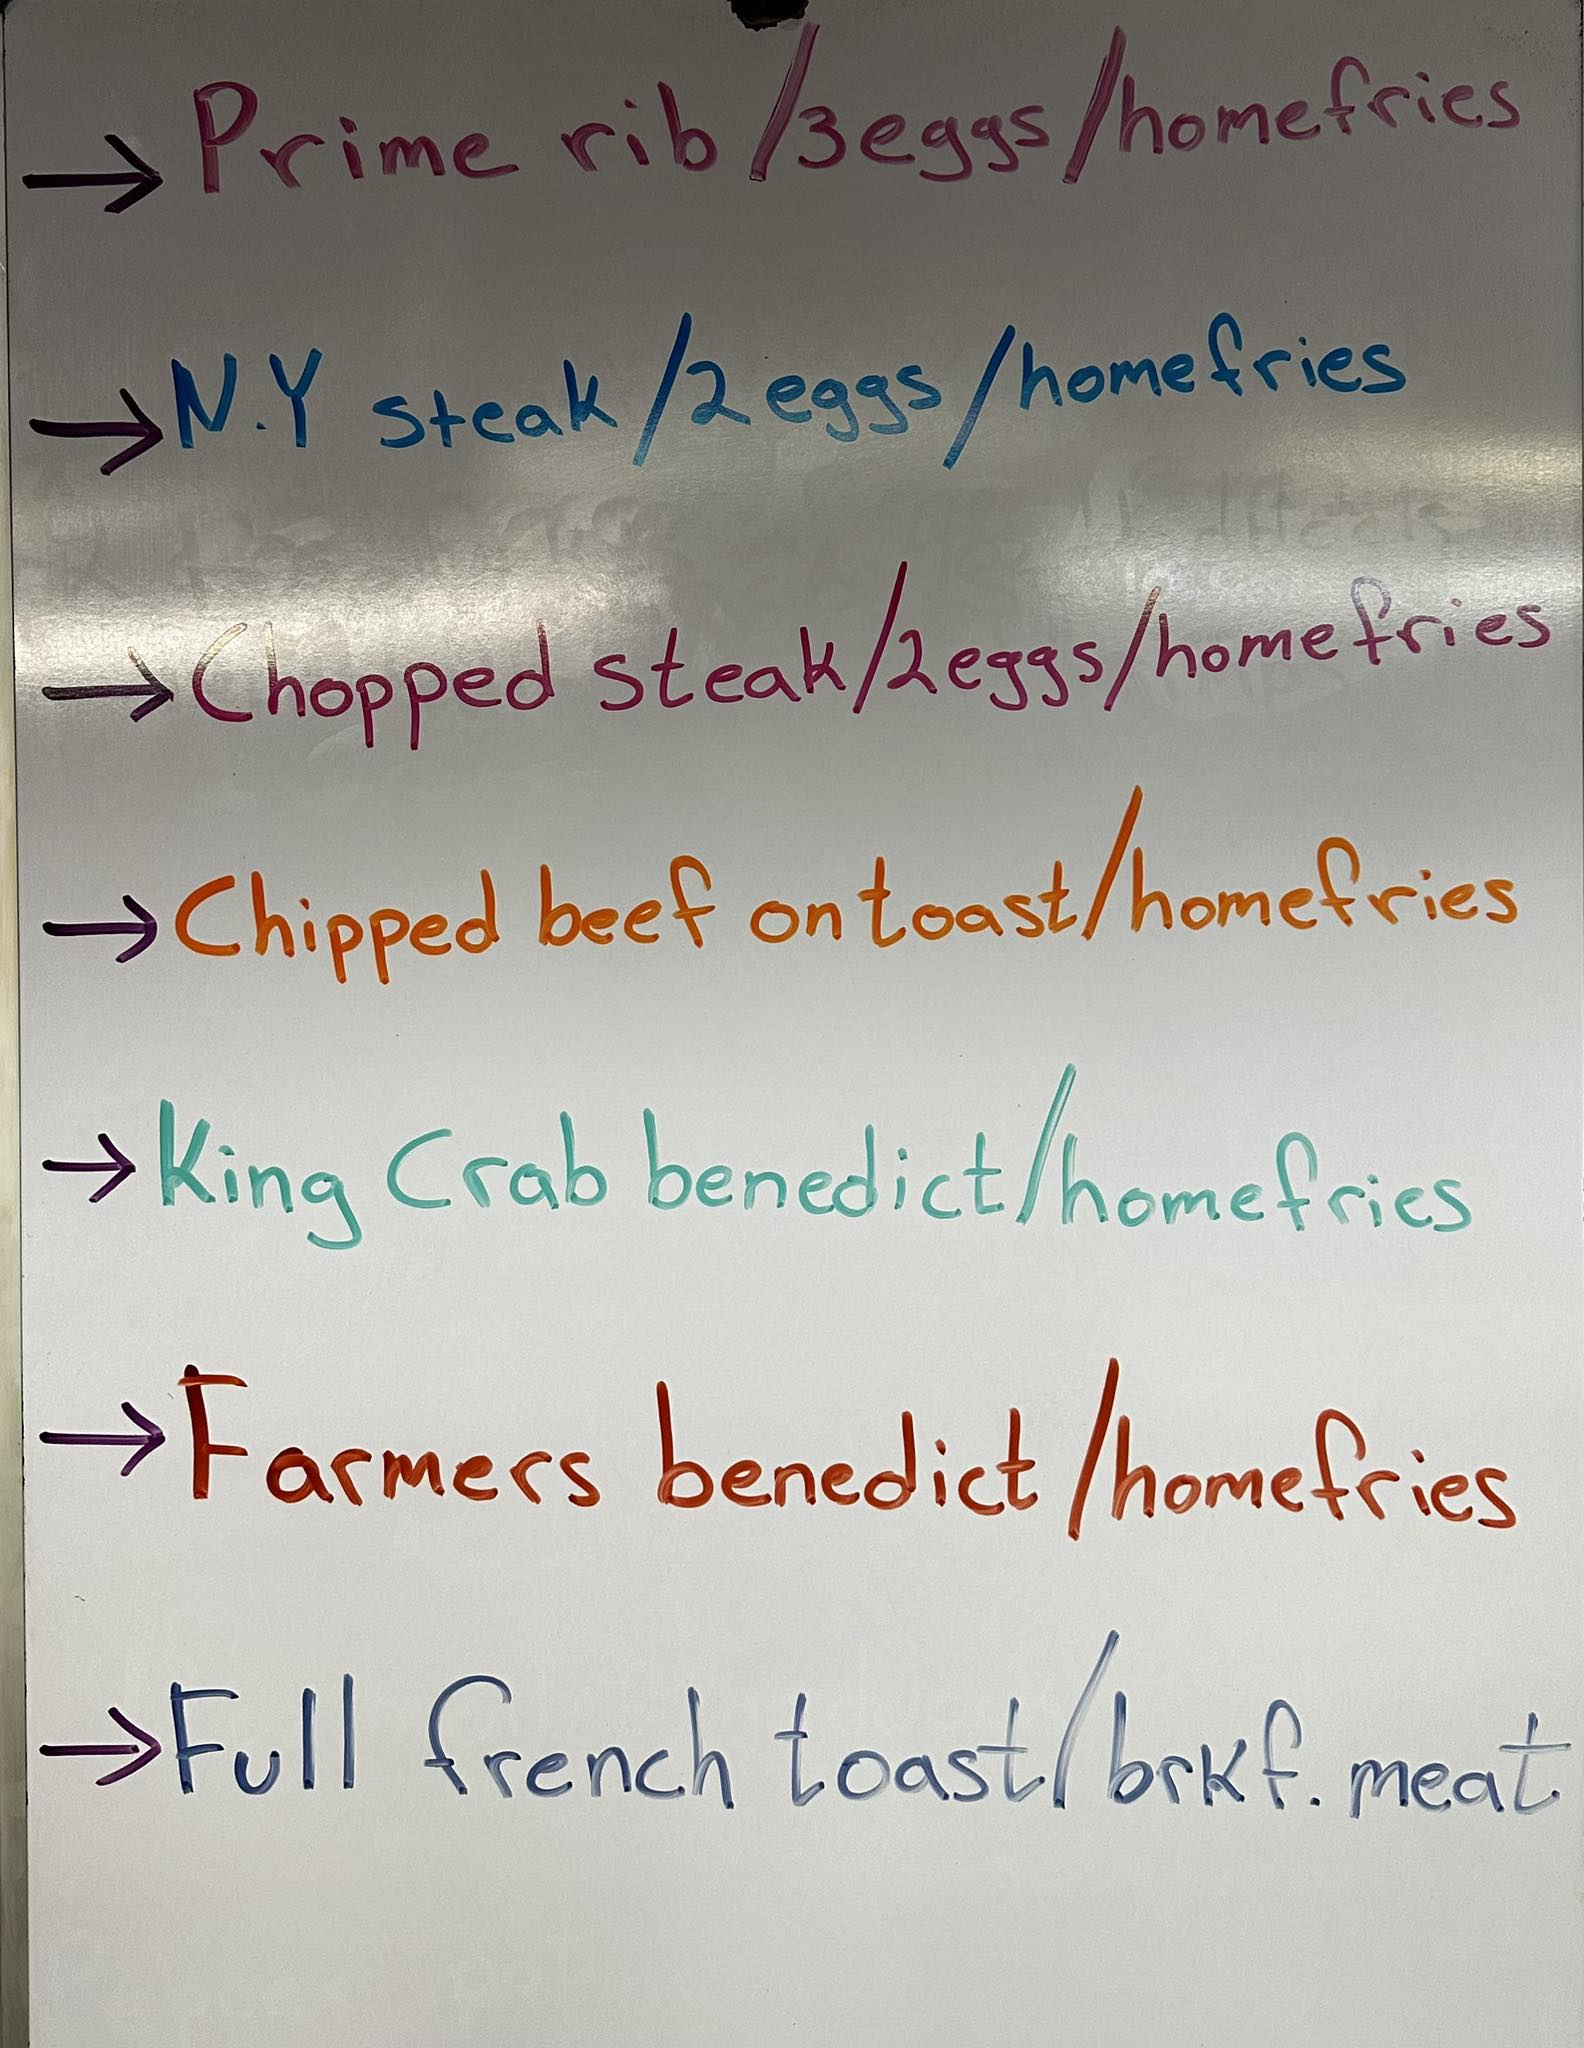 → Prime rib/3eggs/homefries
→ N.Y steak/2eggs/homefries
→ Chopped steak/2eggs/homefries
→ Chipped beef on toast/homefries
→ King Crab benedict/homefries
→ Farmers benedict/homefries
→ Full french toast/brkf. meat